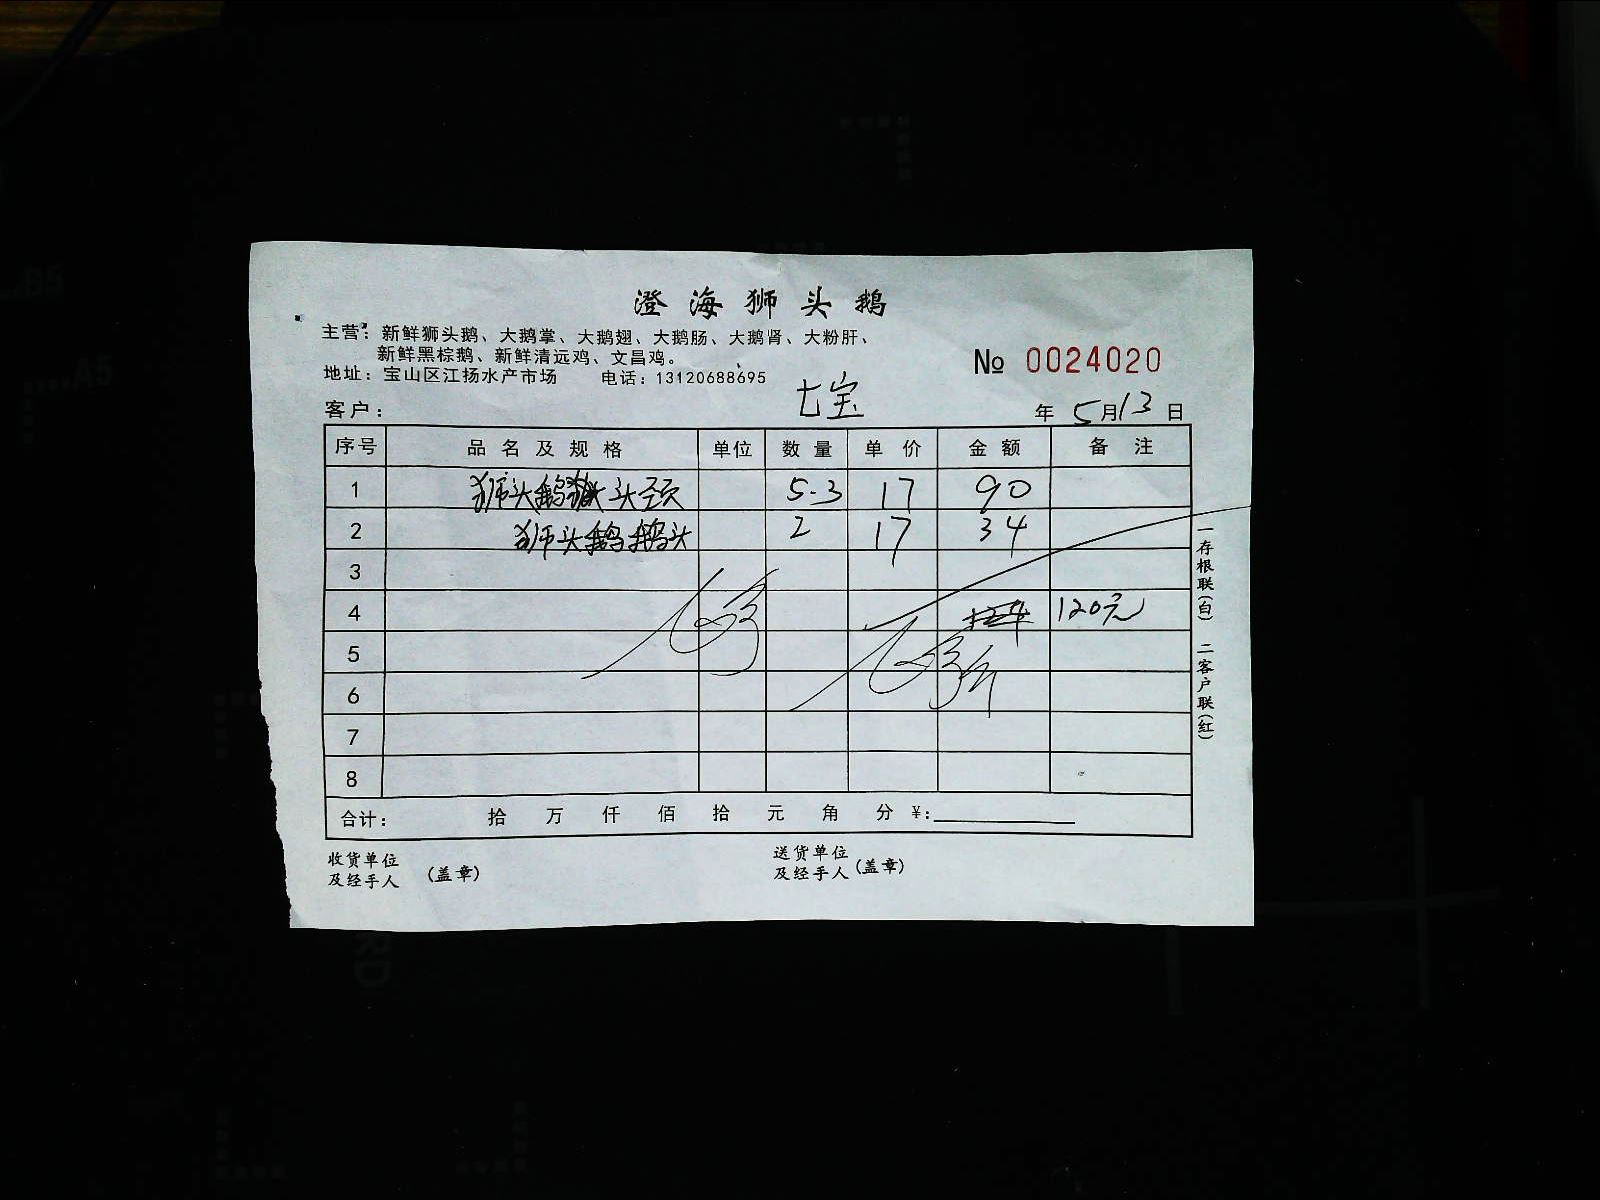 澄海狮头鹅
主营：新鲜狮头鹅、大鹅掌、大鹅翅、大鹅肠、大鹅肾、大粉肝、
新鲜黑棕鹅、新鲜清远鸡、文昌鸡。
地址：宝山区江扬水产市场 电话：13120688695
№ 0024020
客户： 七宝 年 5月13日
序号 品名及规格 单位 数量 单价 金额 备注
1 狮头鹅 头颈 5.3 17 90
2 狮头鹅鹅头 2 17 34
3
4 120元
5
6
7
8
合计： 拾 万 仟 佰 拾 元 角 分 ¥：
收货单位及经手人（盖章） 送货单位及经手人（盖章）
一存根联（白） 二客户联（红）